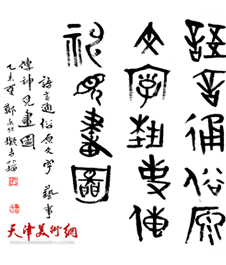 語言通俗原
文字埶事傳
神見畫圖
語言通俗原文字藝事
傳神見畫圖
乙未夏 鄭
天津美術網